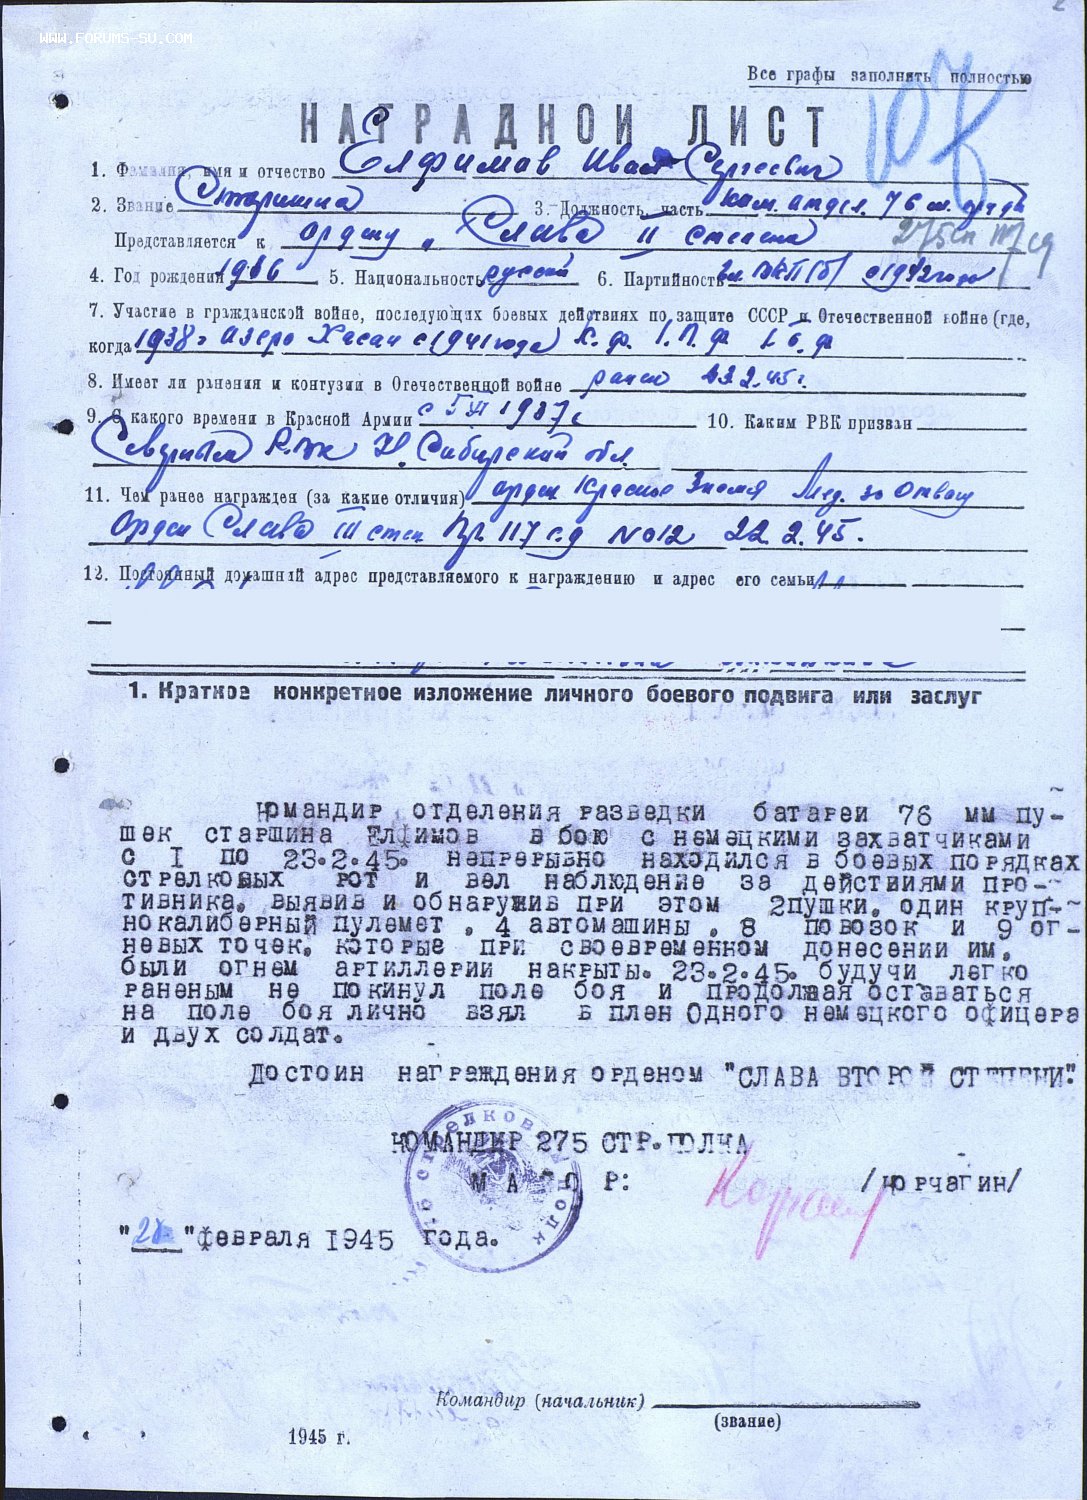 WWW.FORUMS-SU.COM
Все графы заполнять полностью
107
НАГРАДНОЙ ЛИСТ
1. Фамилия, имя и отчество Елфимов Иван Сергеевич
2. Звание Старшина 3. Должность, часть ком. отдел. 76 м. пушек
275 сп 117 сд
Представляется к ордену „Слава II степени
4. Год рождения 1916 5. Национальность русский 6. Партийность чл. ВКП(б) с 1942 года
7. Участие в гражданской войне, последующих боевых действиях по защите СССР и Отечественной войне (где,
когда 1938 г озеро Хасан с 1941 года К. ф. 1. П. ф 1 б. ф
8. Имеет ли ранения и контузии в Отечественной войне ранен 23.2.45 г.
9. С какого времени в Красной Армии с 1937 г 10. Каким РВК призван
РВК Н. Сибирский обл.
11. Чем ранее награжден (за какие отличия) орден Красное Знамя Мед. за Отвагу
Орден Слава III степ Пр. 117 с.д №012 22.2.45.
12. Постоянный домашний адрес представляемого к награждению и адрес его семьи
1. Краткое конкретное изложение личного боевого подвига или заслуг
Командир отделения разведки батареи 76 мм пу-
шек старшина Елфимов в бою с немецкими захватчиками
с I по 23.2.45. непрерывно находился в боевых порядках
стрелковых рот и вел наблюдение за действиями про-
тивника, выявив и обнаружив при этом 2пушки, один круп-
нокалиберный пулемет , 4 автомашины , 8 повозок и 9 ог-
невых точек, которые при своевременном донесении им,
были огнем артиллерии накрыты. 23.2.45. будучи легко
раненым не покинул поле боя и продолжая оставаться
на поле боя лично взял в плен Одного немецкого офицера
и двух солдат.
Достоин награждения орденом "СЛАВА ВТОРОЙ СТЕПЕНИ".
КОМАНДИР 275 СТР.ПОЛКА
МАЙОР: /Корчагин/
"28" февраля 1945 года.
Командир (начальник)
(звание)
1945 г.